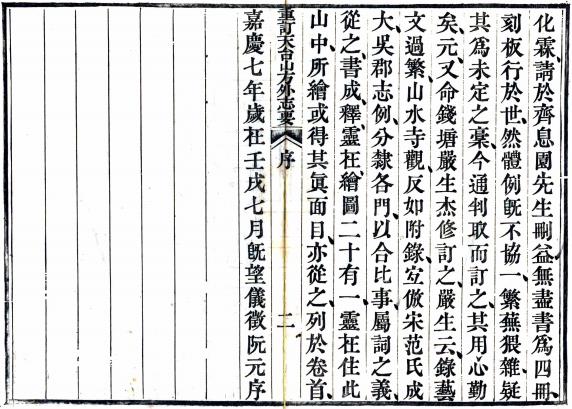 化霖請於齊息園先生刪益無盡書爲四冊
刻板行於世然體例旣不協一繁蕪猥雜疑
其爲未定之稾今通判取而訂之其用心勤
矣元又命錢塘嚴生杰修訂之嚴生云錄藝
文過繁山水寺觀反如附錄宐倣宋范氏成
大吳郡志例分隸各門以合比事屬詞之義
從之書成釋靈在繪圖二十有一靈在住此
山中所繪或得其眞面目亦從之列於卷首
重訂天台山方外志要 序 二
嘉慶七年歲在壬戌七月旣望儀徵阮元序